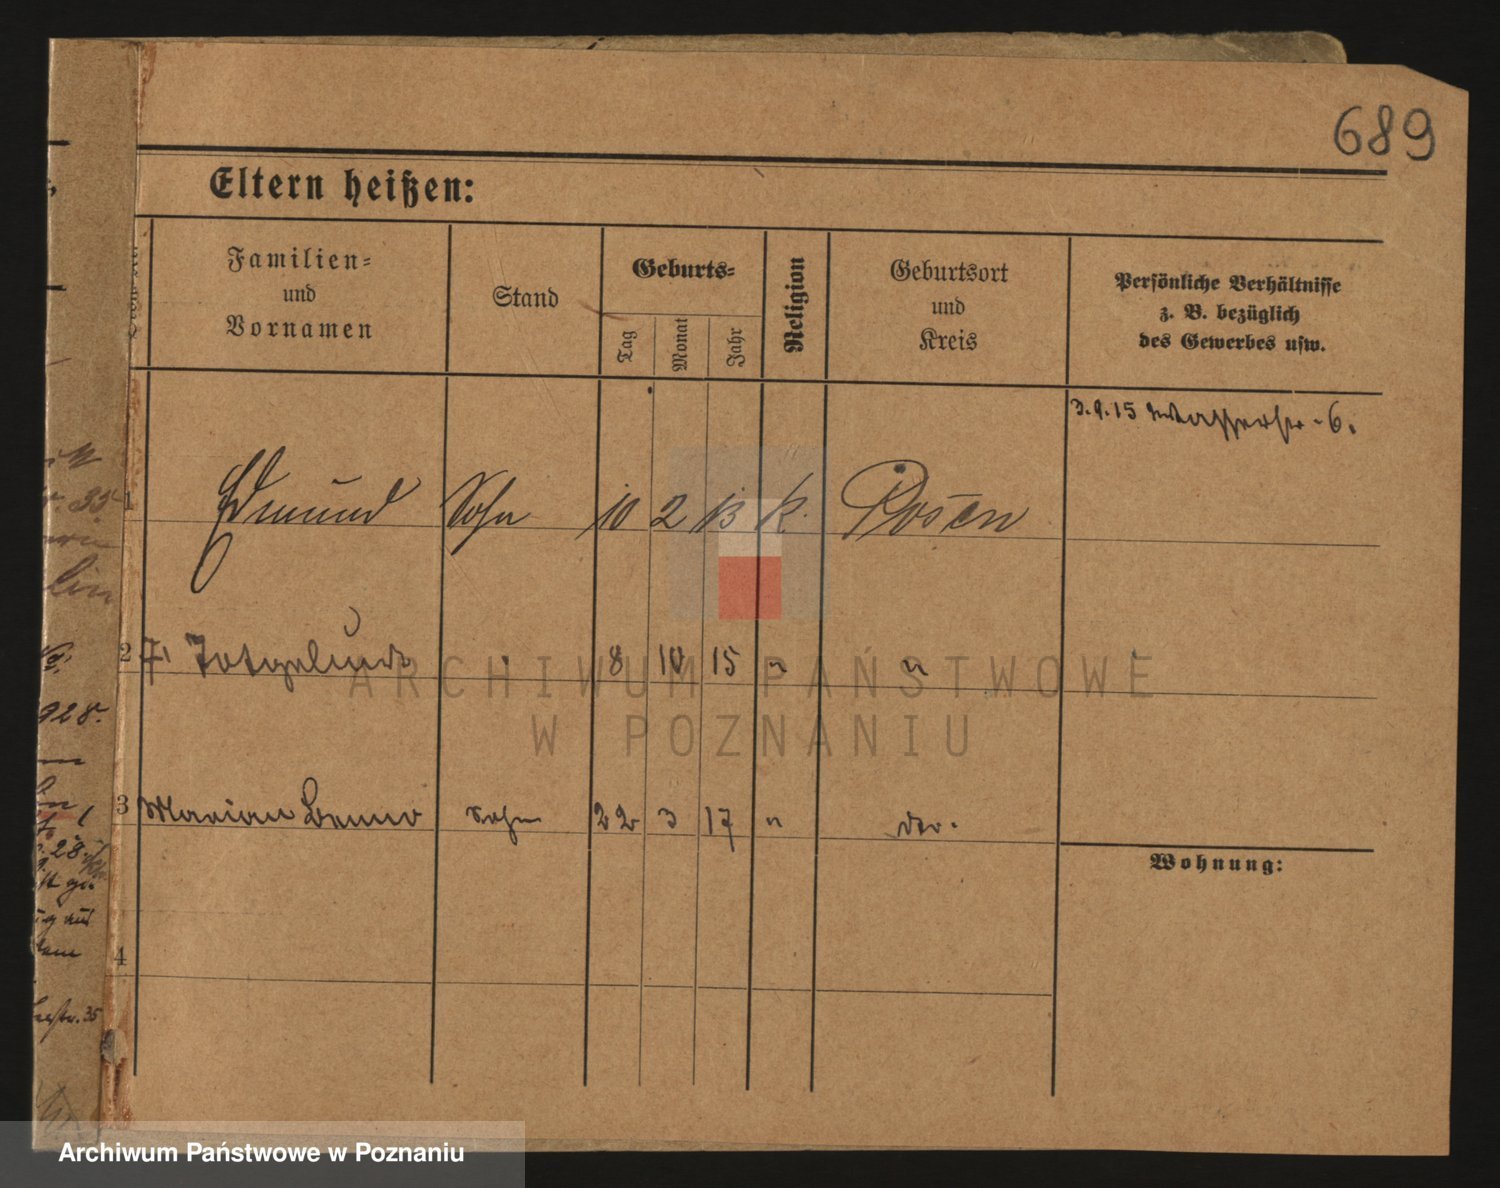 689
Eltern heißen:
Familien=
und
Vornamen
Stand
Geburts=
Tag
Monat
Jahr
Religion
Geburtsort
und
Kreis
Persönliche Verhältnisse
z. B. bezüglich
des Gewerbes usw.
3.9.15 Wasserstr. 6.
1 Edmund Sohn 10 2 13 k. Posen
2 8 10 15 " "
3 Marian Benno Sohn 22 3 17 " do.
Wohnung:
4
35
928.
28.
35
ARCHIWUM PAŃSTWOWE
W POZNANIU
Archiwum Państwowe w Poznaniu